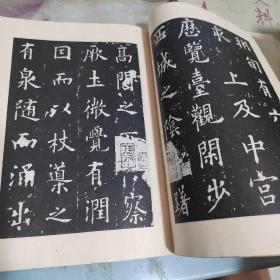 朔旬有六
亥上及中宮
歷覽臺觀閑步
西城之陰躇
高閣之察
厥土微覺有潤
因而以杖導之
有泉随而涌出